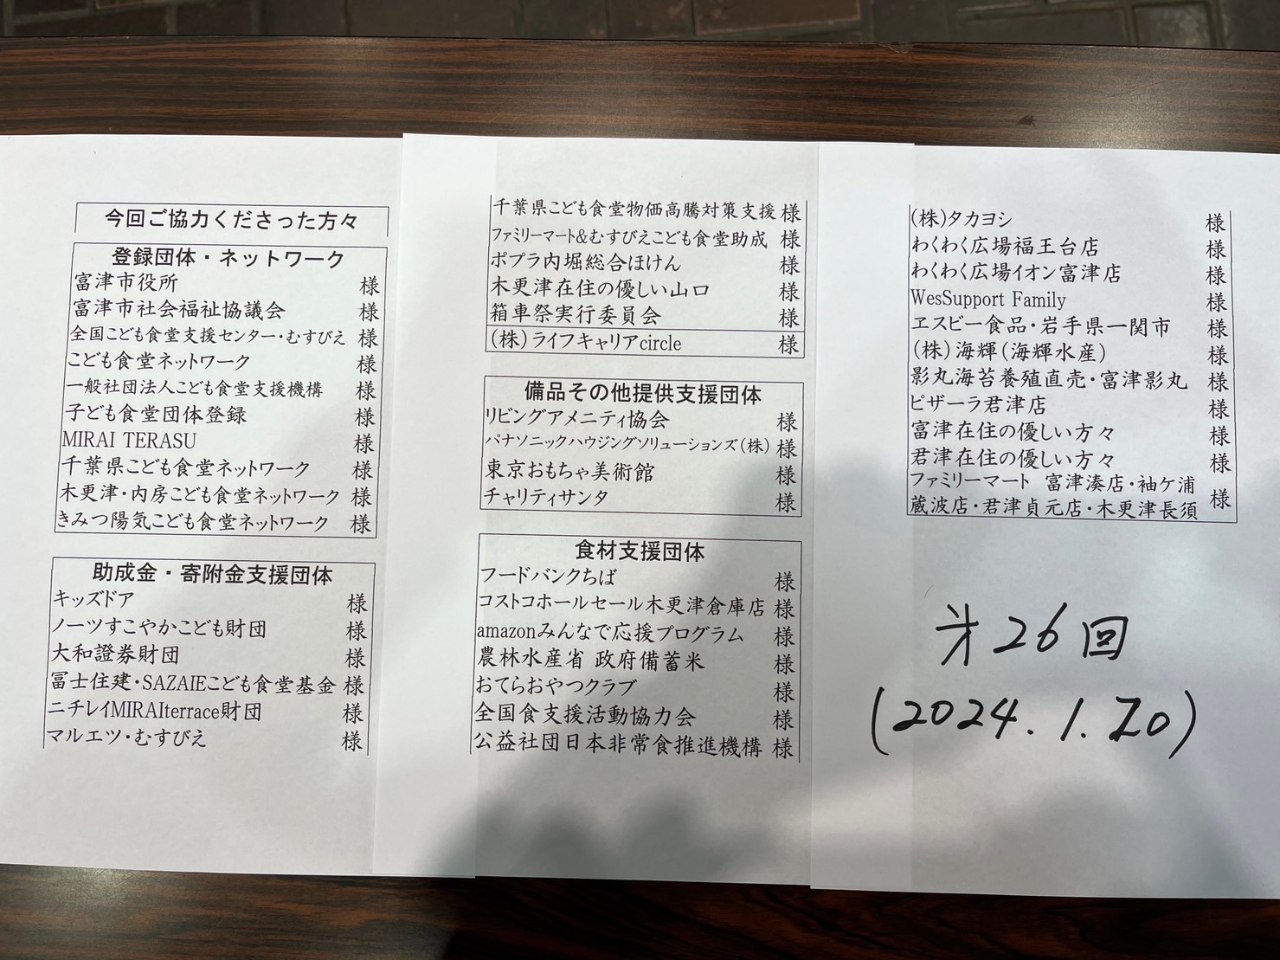 今回ご協力くださった方々
登録団体・ネットワーク
富津市役所 様
富津市社会福祉協議会 様
全国こども食堂支援センター・むすびえ 様
こども食堂ネットワーク 様
一般社団法人こども食堂支援機構 様
子ども食堂団体登録 様
MIRAI TERASU 様
千葉県こども食堂ネットワーク 様
木更津・内房こども食堂ネットワーク 様
きみつ陽気こども食堂ネットワーク 様
助成金・寄附金支援団体
キッズドア 様
ノーツすこやかこども財団 様
大和證券財団 様
冨士住建・SAZAIEこども食堂基金 様
ニチレイMIRAIterrace財団 様
マルエツ・むすびえ 様
千葉県こども食堂物価高騰対策支援 様
ファミリーマート&むすびえこども食堂助成 様
ポプラ内堀総合ほけん 様
木更津在住の優しい山口 様
箱車祭実行委員会 様
(株)ライフキャリアcircle 様
備品その他提供支援団体
リビングアメニティ協会 様
パナソニックハウジングソリューションズ(株) 様
東京おもちゃ美術館 様
チャリティサンタ 様
食材支援団体
フードバンクちば 様
コストコホールセール木更津倉庫店 様
amazonみんなで応援プログラム 様
農林水産省 政府備蓄米 様
おてらおやつクラブ 様
全国食支援活動協力会 様
公益社団日本非常食推進機構 様
(株)タカヨシ 様
わくわく広場福王台店 様
わくわく広場イオン富津店 様
WesSupport Family 様
エスビー食品・岩手県一関市 様
(株)海輝(海輝水産) 様
影丸海苔養殖直売・富津影丸 様
ピザーラ君津店 様
富津在住の優しい方々 様
君津在住の優しい方々 様
ファミリーマート 富津湊店・袖ケ浦
蔵波店・君津貞元店・木更津長須 様
才26回
(2024.1.20)